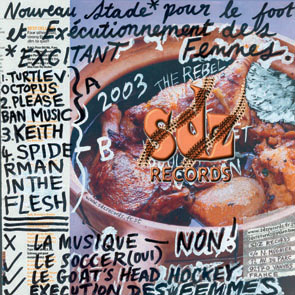 Nouveau Stade* pour le foot
et Exécutionnement dels
*EXCITANT Femmes
1. TURTLE V
OCTOPUS
2. PLEASE
BAN MUSIC
3. KEITH
4. SPIDE
RMAN
IN THE
FLESH
A
B
2003 THE REBEL
sdz
RECORDS
X LA MUSIQUE — NON!
✓ LE SOCCER (OUI)
✓ LE GOAT'S HEAD HOCKEY
✓ EXECUTION DES FEMMES
FRANCE